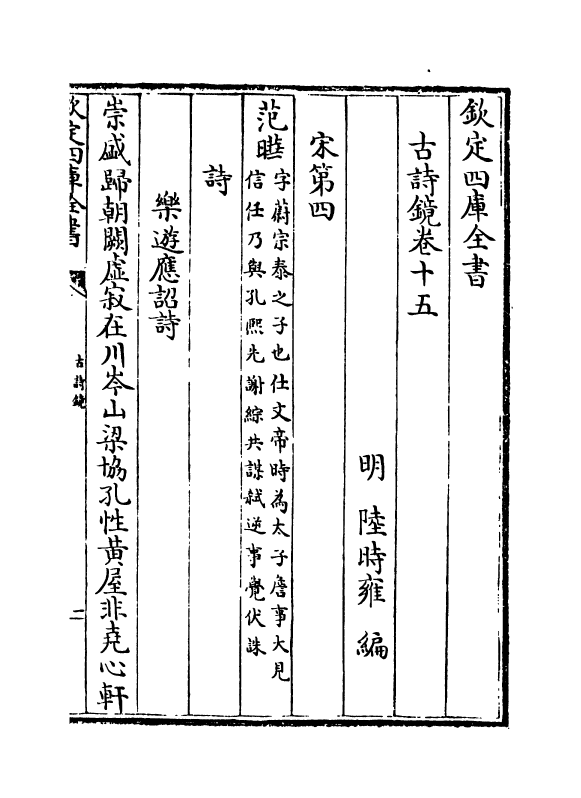 欽定四庫全書
古詩鏡卷十五
明 陸時雍 編
宋第四
范曄字蔚宗泰之子也仕文帝時為太子詹事大見
信任乃與孔熙先謝綜共謀弑逆事覺伏誅
詩
樂遊應詔詩
崇盛歸朝闕虚寂在川岑山梁協孔性黄屋非堯心軒
欽定四庫全書
古詩鏡